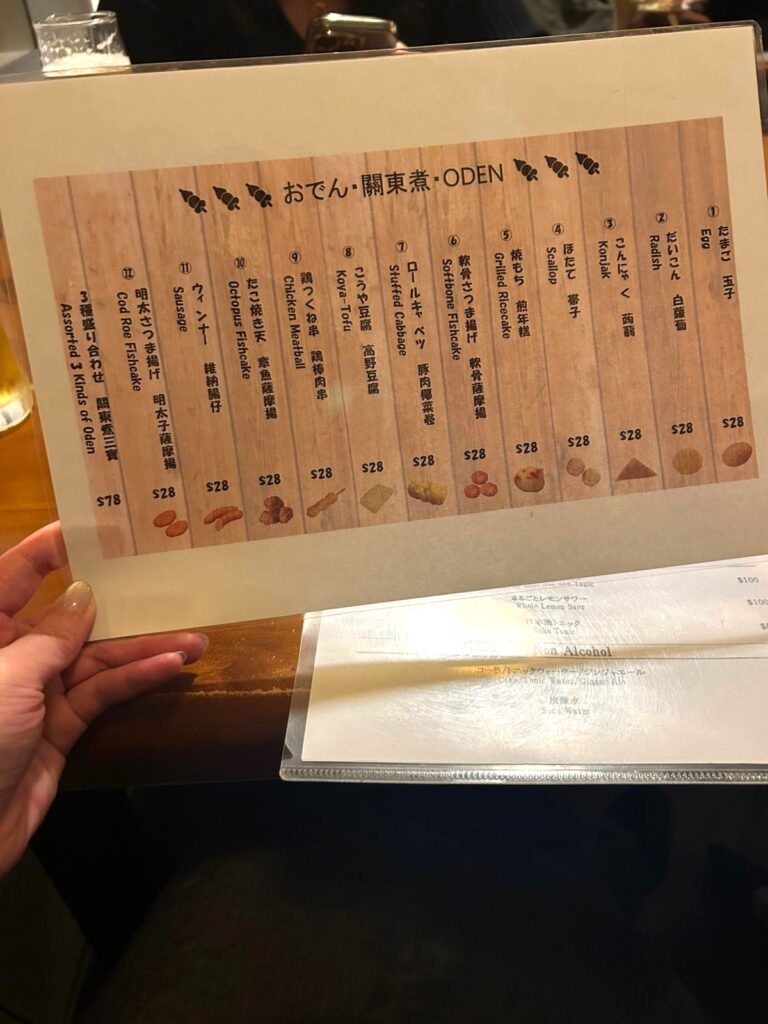 おでん・關東煮・ODEN
① たまご 玉子
Egg
$28
② だいこん 白蘿蔔
Radish
$28
③ こんにゃく 蒟蒻
Konjak
$28
④ ほたて 帯子
Scallop
$28
⑤ 焼もち 煎年糕
Grilled Ricecake
$28
⑥ 軟骨さつま揚げ 軟骨薩摩揚
Softbone Fishcake
$28
⑦ ロールキャベツ 豚肉椰菜卷
Stuffed Cabbage
$28
⑧ こうや豆腐 高野豆腐
Koya-Tofu
$28
⑨ 鶏つくね串 鶏棒肉串
Chicken Meatball
$28
⑩ たこ焼き天 章魚薩摩揚
Octopus Fishcake
$28
⑪ ウィンナー 維納腸仔
Sausage
$28
⑫ 明太さつま揚げ 明太子薩摩揚
Cod Roe Fishcake
$28
3種盛り合わせ 關東煮三寶
Assorted 3 Kinds of Oden
$78
and Tonic
$100
まるごとレモンサワー
Whole Lemon Sour
$100
日本酒トニック
Sake Tonic
Non Alcohol
コーラ/トニックウォーター/ジンジャエール
Coke/Tonic Water/Ginger Ale
炭酸水
Soda Water